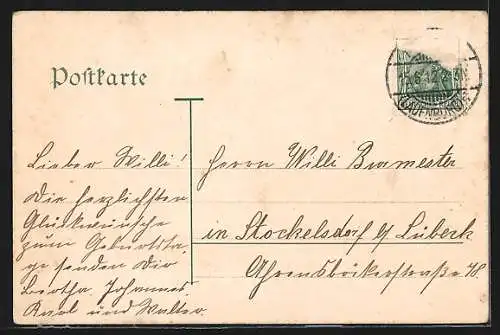 Postkarte
Lieber Willi!
Die herzlichsten
Glückwünsche
zum Geburtsta-
ge senden Dir
Bertha, Johannes,
Karl und Walter.
Herrn Willi Burmester
in Stockelsdorf b/ Lübeck
Ahrensböckerstraße
LAUENBURG